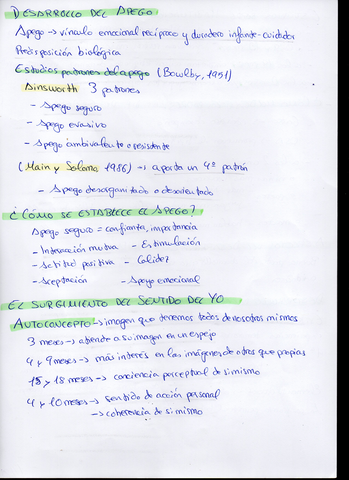 DESARROLLO DEL APEGO
Apego → vínculo emocional recíproco y duradero infante-cuidador
Predisposición biológica
Estudios patrones del apego (Bowlby, 1951)
Ainsworth 3 patrones
- Apego seguro
- Apego evasivo
- Apego ambivalente o resistente
(Main y Soloma 1986) → aporta un 4º patrón
- Apego desorganizado o desorientado
¿CÓMO SE ESTABLECE EL APEGO?
Apego seguro = confianza, importancia
- Interacción mutua - Estimulación
- Actitud positiva - Calidez
- Aceptación - Apoyo emocional
EL SURGIMIENTO DEL SENTIDO DEL YO
AUTOCONCEPTO → imagen que tenemos todos de nosotros mismos
3 meses → atiende a su imagen en un espejo
4 y 9 meses → más interés en las imágenes de otros que propias
15 y 18 meses → conciencia perceptual de si mismo
4 y 10 meses → sentido de acción personal
→ coherencia de si mismo